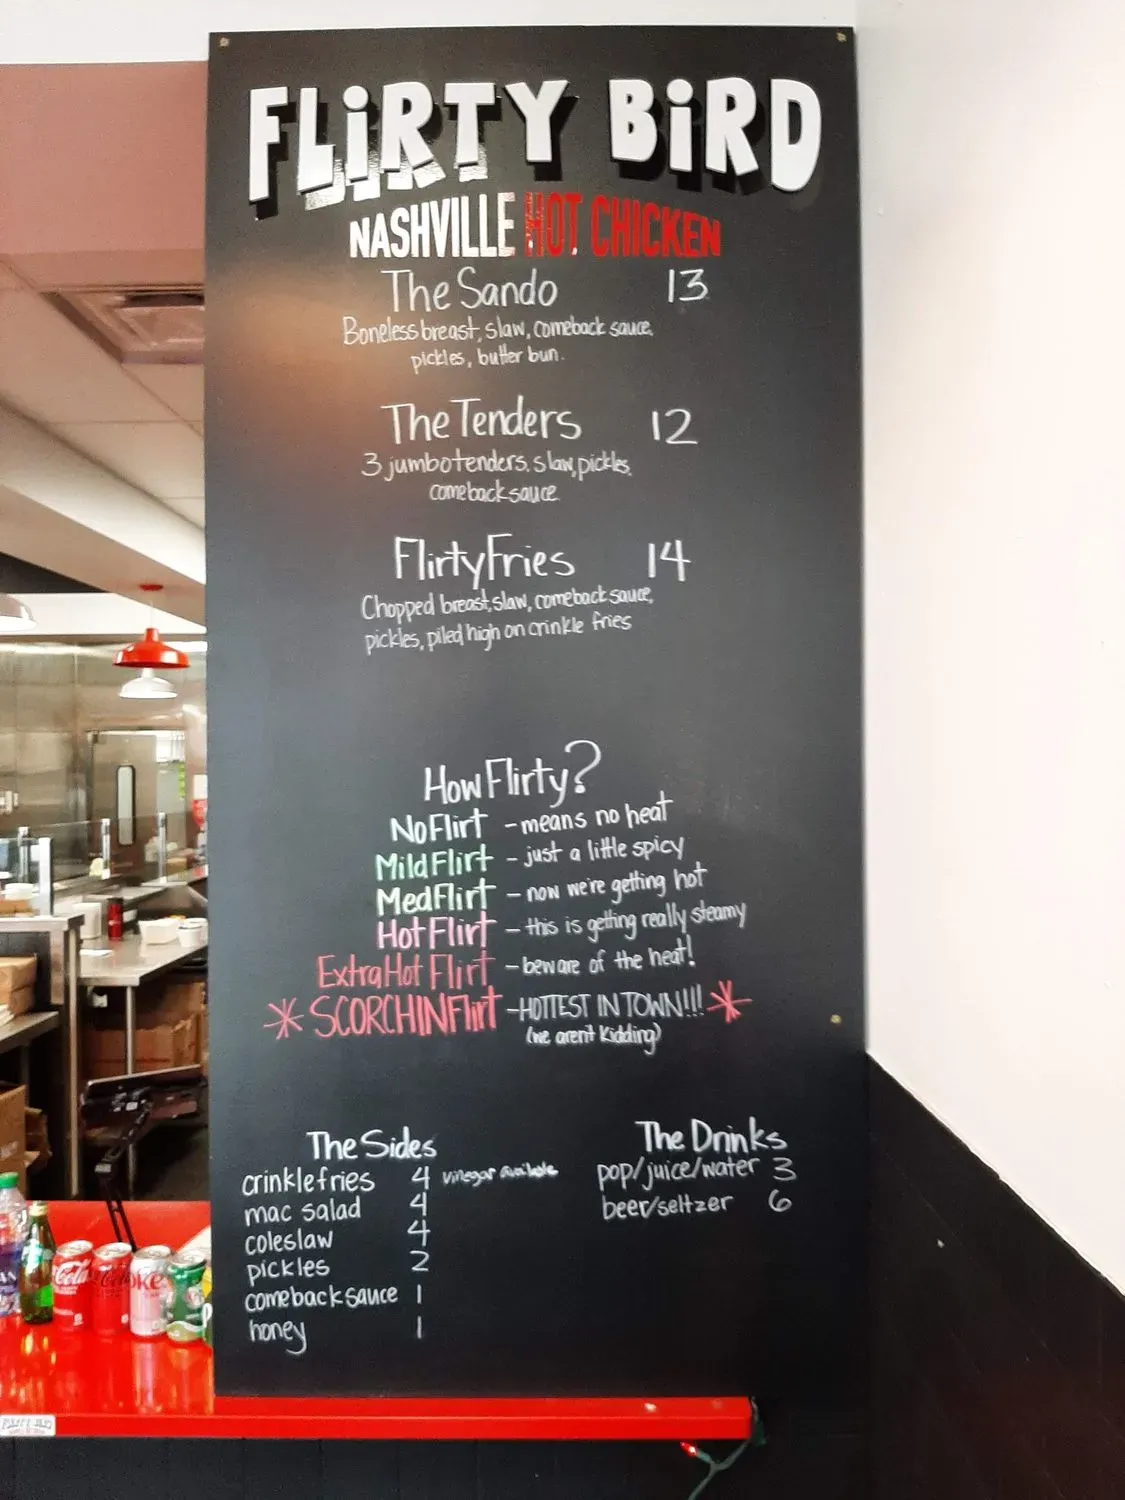 FLiRTY BiRD
NASHVILLE HOT CHICKEN
The Sando 13
Boneless breast, slaw, comeback sauce,
pickles, butter bun.
The Tenders 12
3 jumbo tenders, slaw, pickles,
comeback sauce
Flirty Fries 14
Chopped breast, slaw, comeback sauce,
pickles, piled high on crinkle fries
How Flirty?
No Flirt - means no heat
Mild Flirt - just a little spicy
Med Flirt - now we're getting hot
Hot Flirt - this is getting really steamy
Extra Hot Flirt - beware of the heat!
* SCORCHIN Flirt - HOTTEST IN TOWN!!! *
(we aren't kidding)
The Sides
crinkle fries 4 vinegar available
mac salad 4
coleslaw 4
pickles 2
comeback sauce 1
honey 1
The Drinks
pop/juice/water 3
beer/seltzer 6